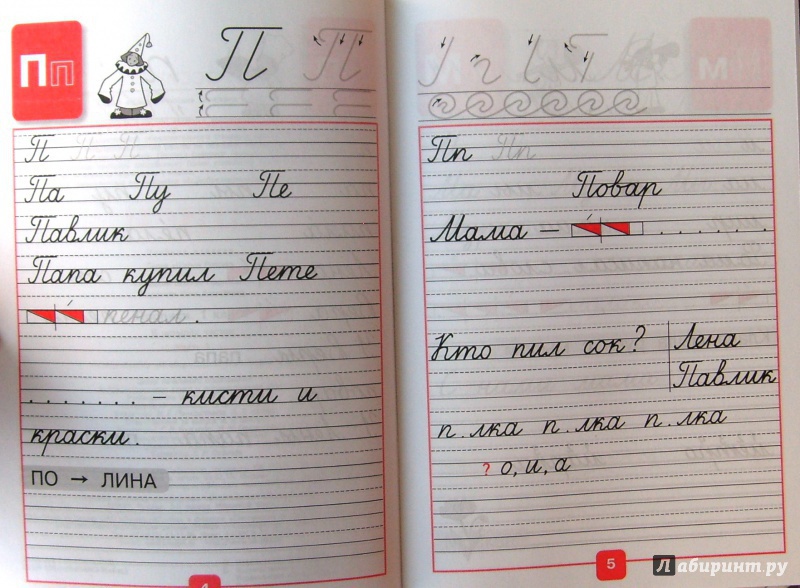 Пп
П П
П П П
Па Пу Пе
Павлик
Папа купил Пете
пенал.
. . . . . . . – кисти и
краски.
ПО → ЛИНА
4
Пп Пп
Повар
Мама – . . . . . . .
Кто пил сок? Лена
Павлик
п.лка п.лка п.лка
? о, и, а
5
Лабиринт.ру